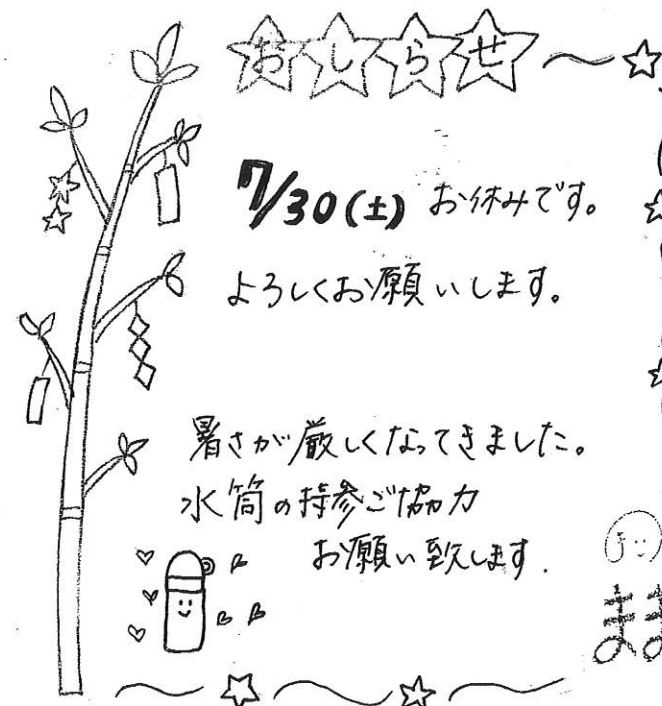 おしらせ
7/30(土) お休みです。
よろしくお願いします。
暑さが厳しくなってきました。
水筒の持参ご協力
お願い致します.
まま